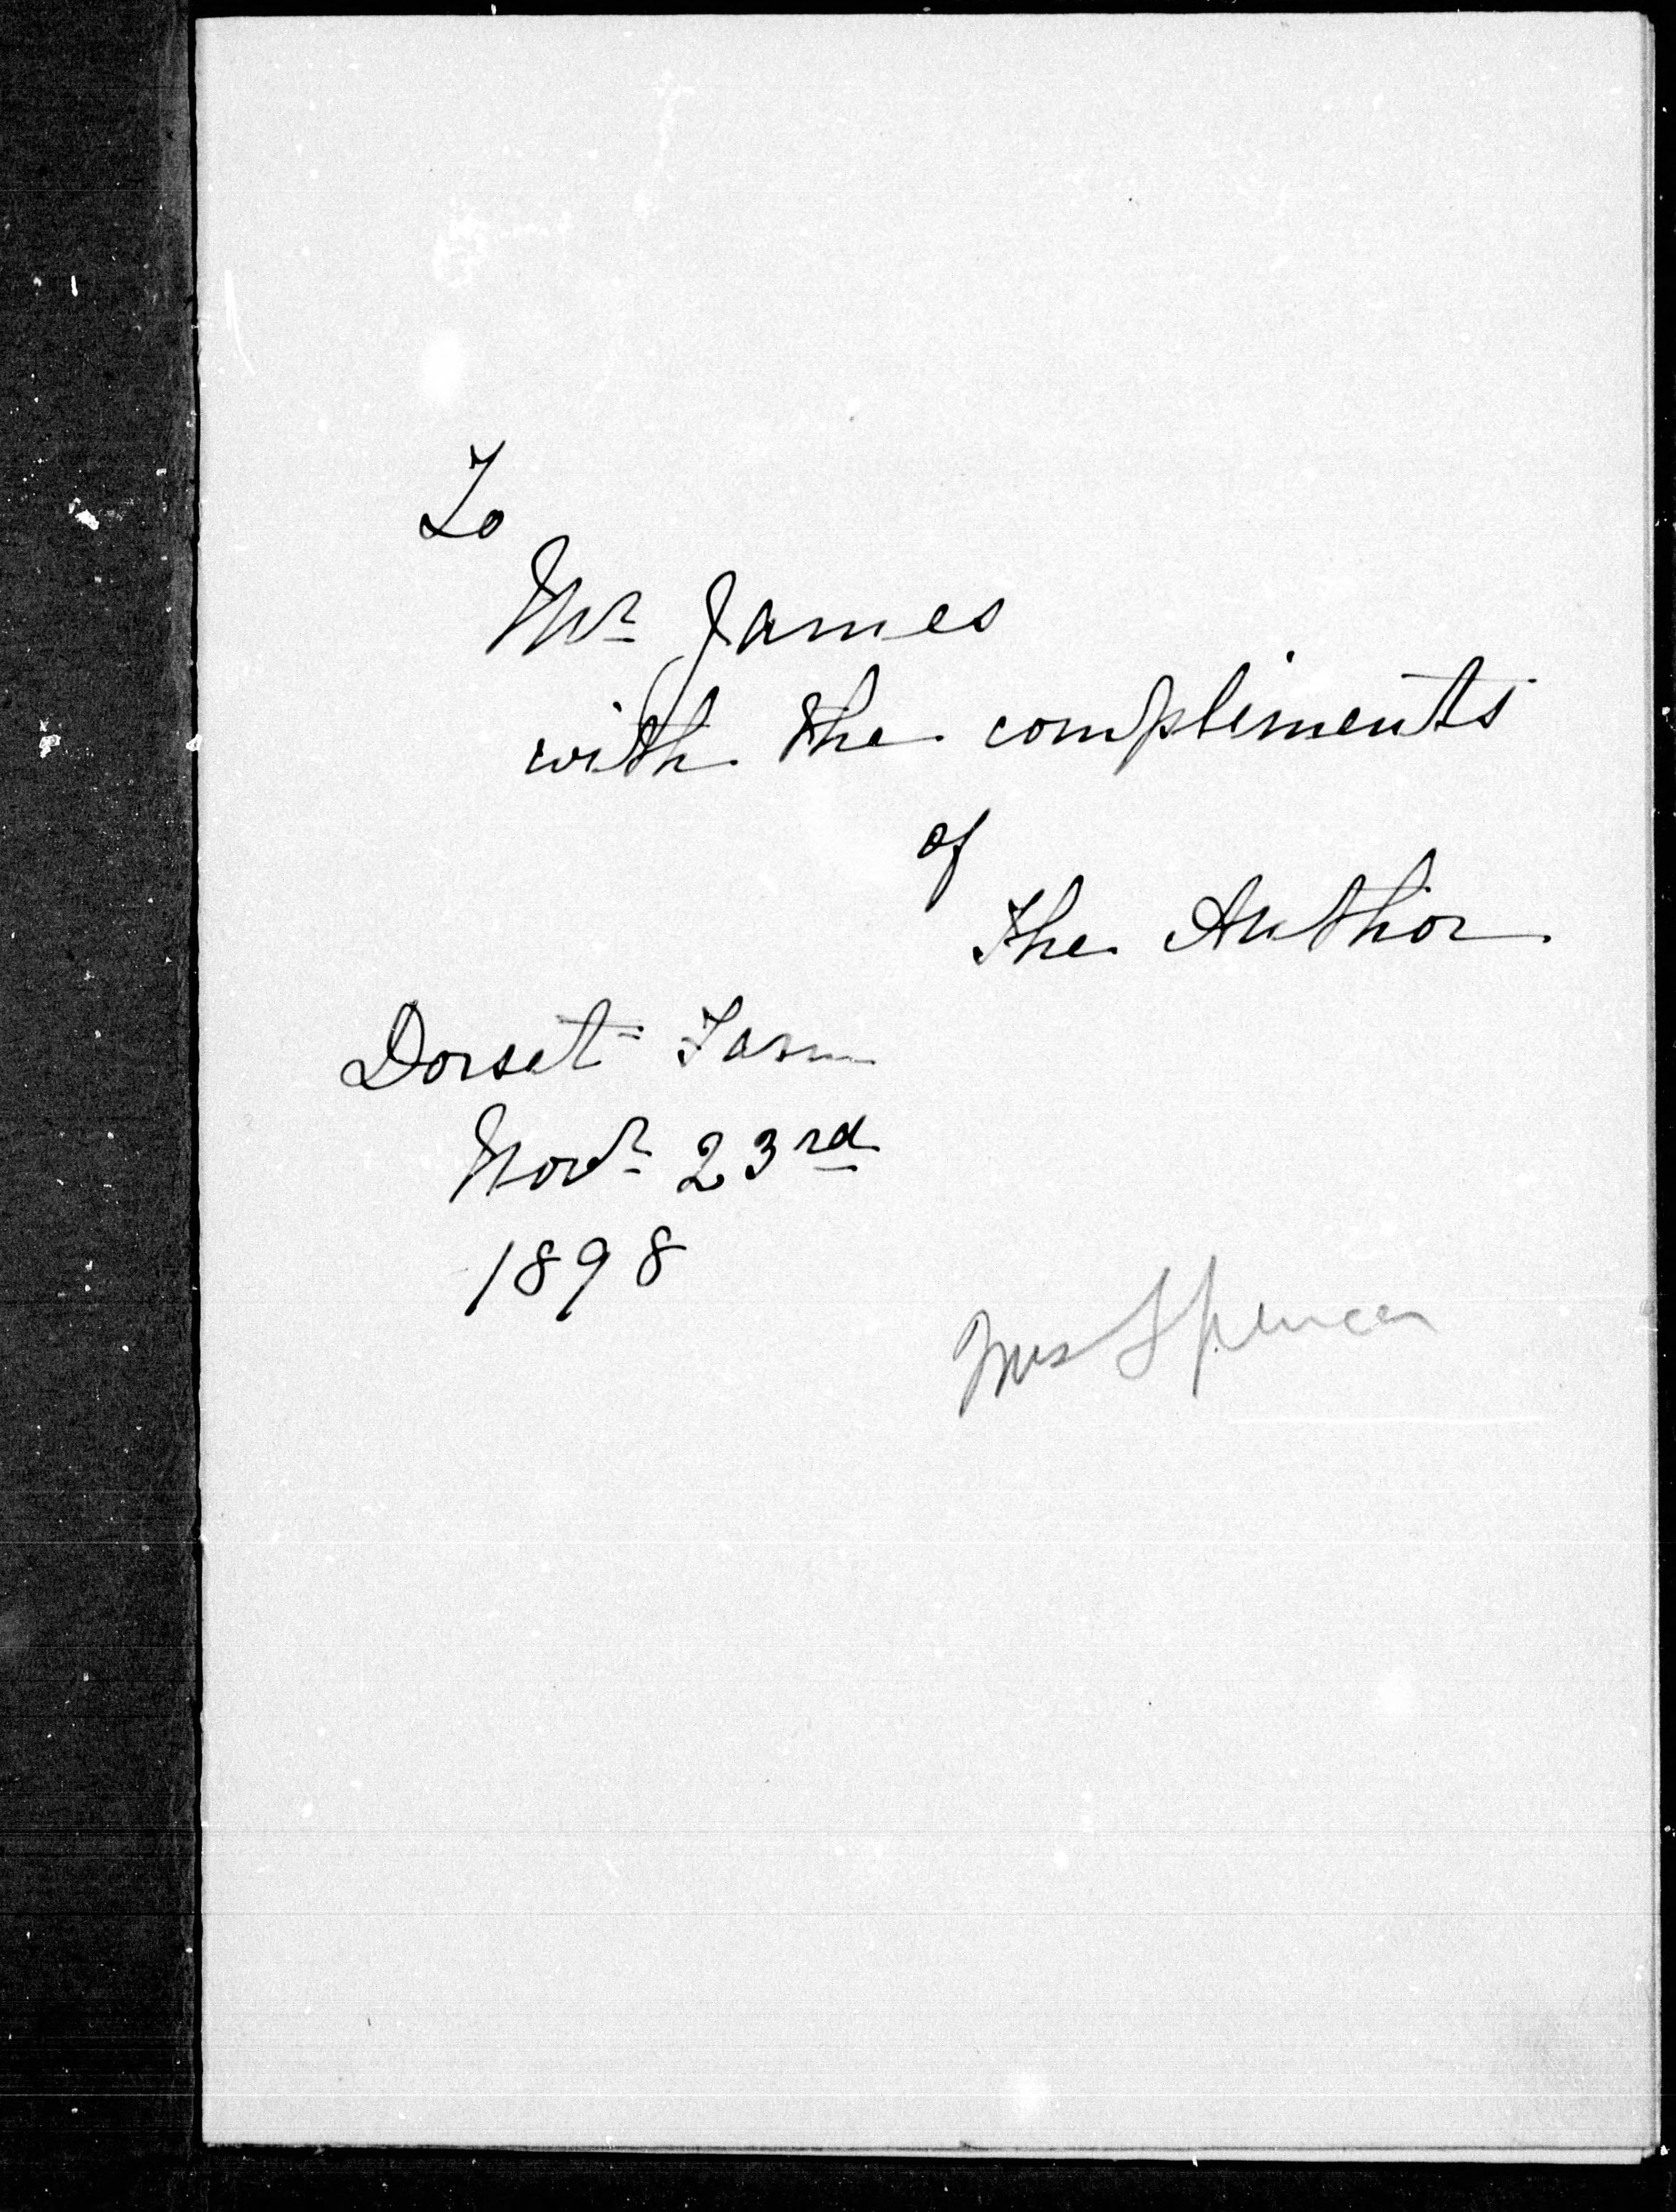 To
Mr James
with the compliments
of
The Author
Dorset Farm
Novr 23rd
1898
Mrs Spencer